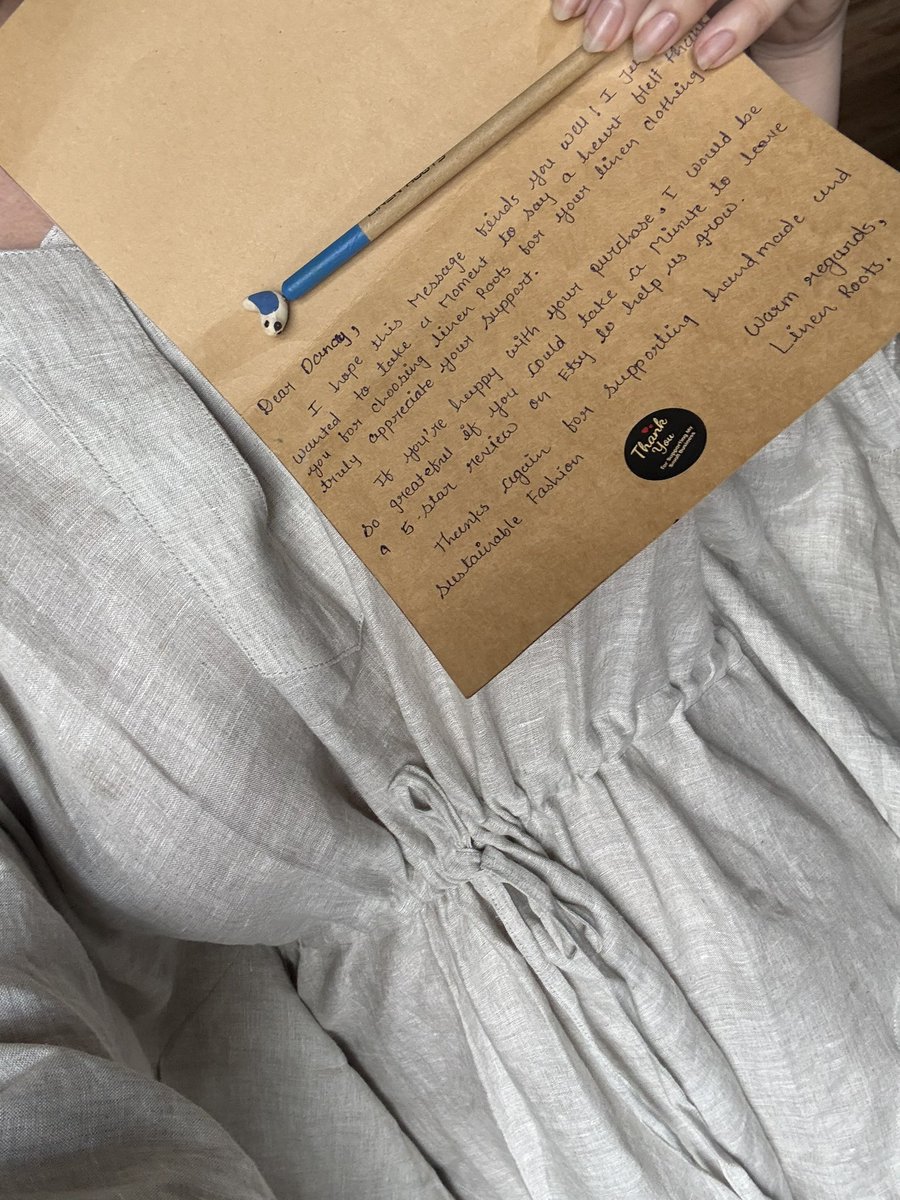 Dear Dandy,
I hope this Message finds you well! I
wanted to take a Moment to say a heart felt
you for choosing Linen Roots for your linen clothing
truly appreciate your support.
If you're happy with your purchase, I would be
so greateful if you could take a minute to leave
a 5 star review on Etsy to help us grow.
Thanks again for supporting handmade and
sustainable Fashion
Warm regards,
Linen Roots.
Thank
You
for Supporting My
Small Business